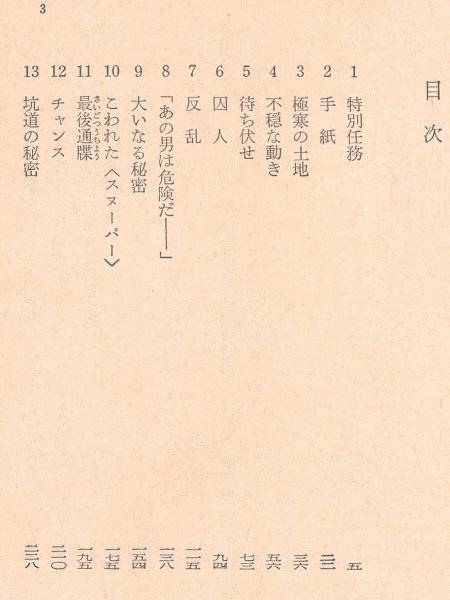 3
目次
1 特別任務 五
2 手紙
3 極寒の土地 三六
4 不穏な動き 五六
5 待ち伏せ 七三
6 囚人 九四
7 反乱 一一五
8 「あの男は危険だ――」 一三八
9 大いなる秘密 一五四
10 こわれた〈スヌーパー〉 一七五
11 最後通牒 さいごつうちよう 一九五
12 チャンス 二一〇
13 坑道の秘密